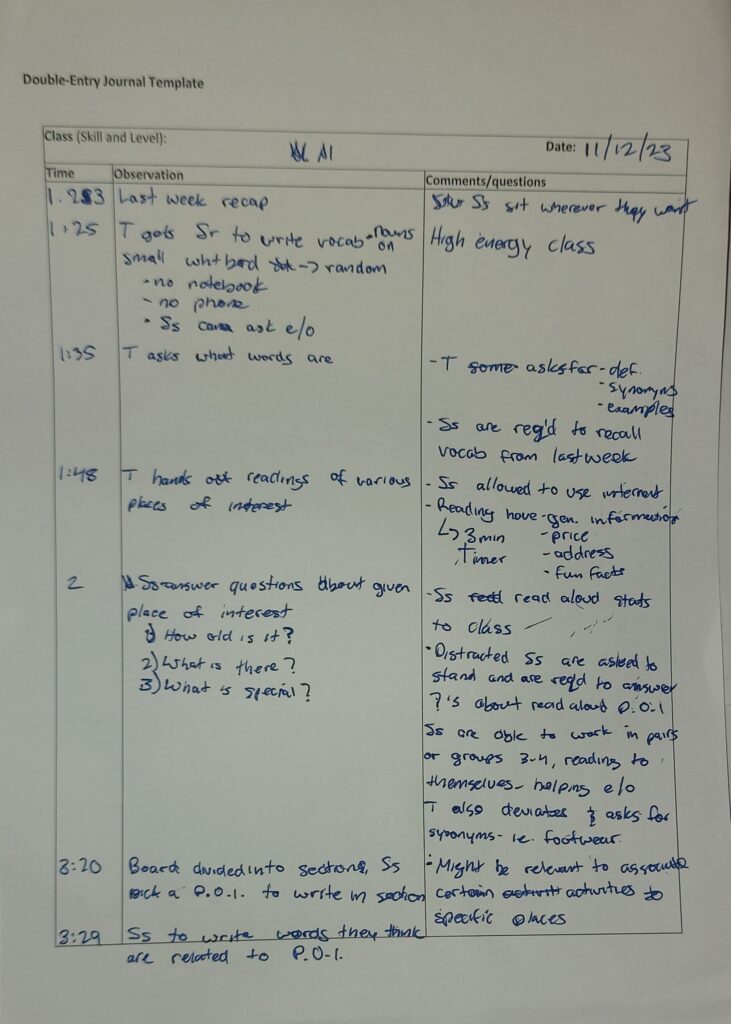 Double-Entry Journal Template
Class (Skill and Level): A1 Date: 11/12/23
Time Observation Comments/questions
1.23 Last week recap
Ss sit wherever they want
1:25 T gets Ss to write vocab - nouns on
small wht bord -> random
- no notebook
- no phone
- Ss can ask e/o
High energy class
1:35 T asks what words are
- T asks for - def.
- synonyms
- examples
- Ss are req'd to recall
vocab from last week
1:48 T hands out readings of various
places of interest
- Ss allowed to use internet
- Reading have - gen. information
↳ 3 min - price
Timer - address
- fun facts
2 Ss answer questions about given
place of interest
1) How old is it?
2) What is there?
3) What is special?
- Ss read aloud stats
to class
- Distracted Ss are asked to
stand and are req'd to answer
?'s about read aloud P.O.I
Ss are able to work in pairs
or groups 3-4, reading to
themselves - helping e/o
T also deviates & asks for
synonyms - ie. footwear.
3:20 Board divided into sections, Ss
pick a P.O.I. to write in section
- Might be relevant to associate
certain activities to
specific places
3:29 Ss to write words they think
are related to P.O.I.